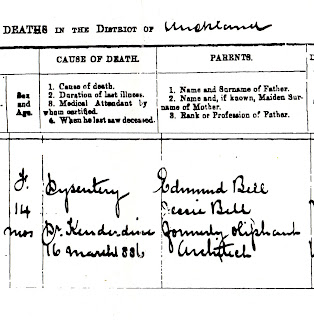 DEATHS IN THE DISTRICT OF Auckland
CAUSE OF DEATH.
PARENTS.
Sex
and
Age.
1. Cause of death.
2. Duration of last illness.
3. Medical Attendant by
whom certified.
4. When he last saw deceased.
1. Name and Surname of Father.
2. Name and, if known, Maiden Sur-
name of Mother.
3. Rank or Profession of Father.
F.
14
mos
Dysentery
Dr. Kenderdine
16 March 1886
Edmund Bell
Bell
formerly Oliphant
Architect